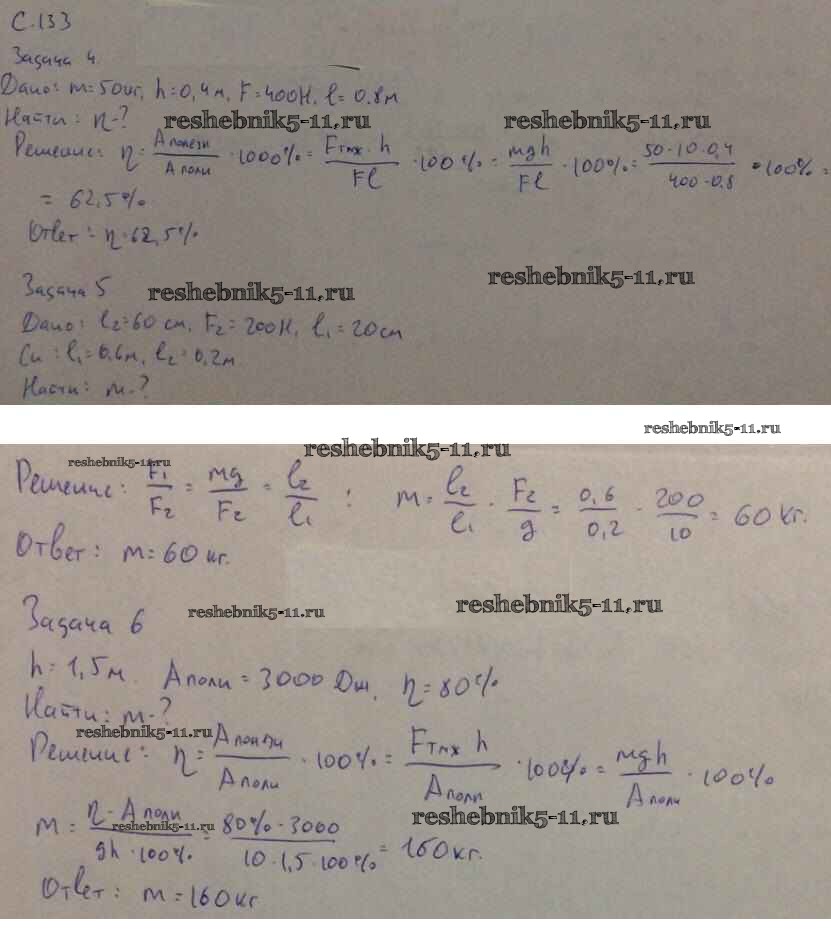 С.133
Задача 4.
Дано: m=50кг, h=0,4м, F=400Н, l=0,8м
Найти: η-?
reshebnik5-11.ru
reshebnik5-11.ru
Решение: η = Aполезн / Aполн · 1000% = Fтяж · h / Fl · 100% = mgh / Fl · 100% = 50·10·0,4 / 400·0,8 · 100% =
= 62,5%
Ответ: η=62,5%
reshebnik5-11.ru
Задача 5
reshebnik5-11.ru
Дано: l₂=60 см, F₂=200Н, l₁=20см
Си: l₁=0,6м, l₂=0,2м
Найти: m-?
reshebnik5-11.ru
reshebnik5-11.ru
reshebnik5-11.ru
Решение: F₁ / F₂ = mg / F₂ = l₂ / l₁ ; m = l₂ / l₁ · F₂ / g = 0,6 / 0,2 · 200 / 10 = 60 кг.
Ответ: m=60 кг.
reshebnik5-11.ru
reshebnik5-11.ru
Задача 6
h=1,5м. Aполн = 3000 Дж, η=80%
Найти: m-?
reshebnik5-11.ru
Решение: η = Aполезн / Aполн · 100% = Fтяж h / Aполн · 100% = mgh / Aполн · 100%
reshebnik5-11.ru
reshebnik5-11.ru
m = η · Aполн / gh · 100% = 80% · 3000 / 10 · 1,5 · 100% = 160 кг.
Ответ: m=160 кг